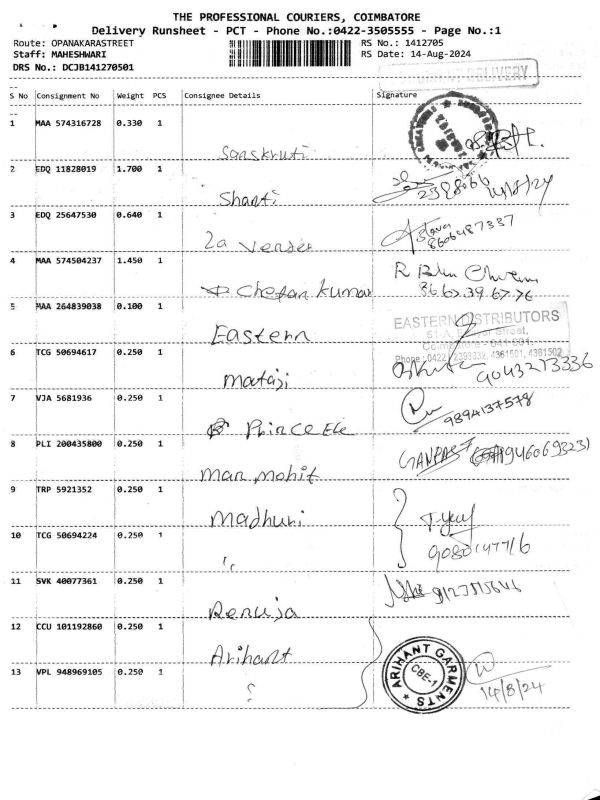 THE PROFESSIONAL COURIERS, COIMBATORE
Delivery Runsheet - PCT - Phone No.:0422-3505555 - Page No.:1
Route: OPANAKARASTREET
RS No.: 1412705
Staff: MAHESHWARI
RS Date: 14-Aug-2024
DRS No.: DCJB141270501
DELIVERY
--
S No Consignment No Weight PCS Consignee Details Signature
--
1 MAA 574316728 0.330 1
Sanskruti
2 EDQ 11828019 1.700 1
Shanti
14/8/24
3 EDQ 25647530 0.640 1
La Vender
8606487337
4 MAA 574504237 1.450 1
Chetan kumar
R
86 67 39 67 76
5 MAA 264839038 0.100 1
Eastern
EASTERN DISTRIBUTORS
Street,
Coimbatore - 641 001.
Phone : 0422 2393332, 4361501, 4381502
6 TCG 50694617 0.250 1
Mataji
9043273336
7 VJA 5681936 0.250 1
Prince Ele
9894137578
8 PLI 200435800 0.250 1
Man mohit
GANPAT
9 TRP 5921352 0.250 1
Madhuri
10 TCG 50694224 0.250 1
"
9080147716
11 SVK 40077361 0.250 1
Renuja
12 CCU 101192860 0.250 1
Arihant
13 VPL 948969105 0.250 1
"
ARIHANT GARMENTS
CBE-1
14/8/24